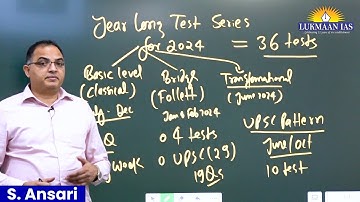 LUKMAAN IAS
Year Long Test Series
for 2024 = 36 tests
Basic level
(Classical)
Bridge
(Follett)
Transformational
(June 2024)
Dec
Jan & Feb 2024
UPSC Pattern
Q
o 4 tests
June/Oct
Week
o UPSC (29)
10 test
19Qs
S. Ansari